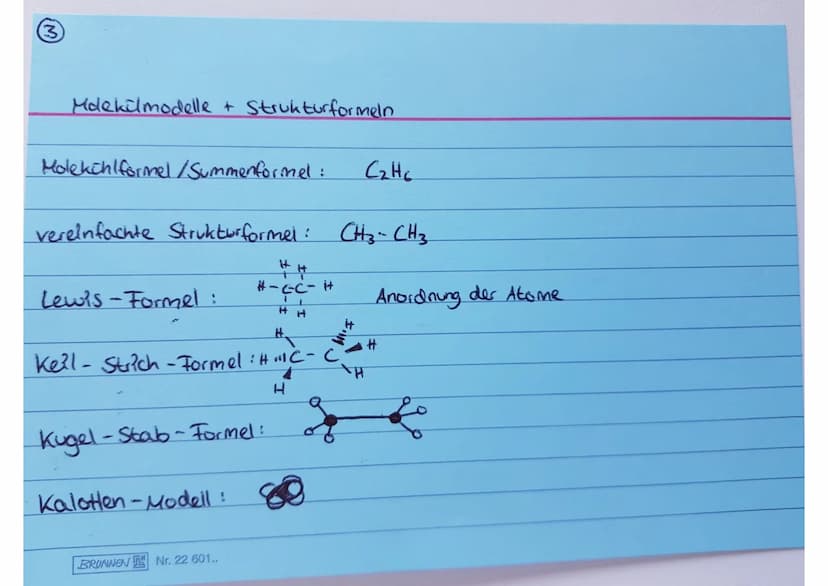 3
Molekülmodelle + Strukturformeln
Molekühlformel/Summenformel: C₂H₆
vereinfachte Strukturformel: CH₃-CH₃
H H
Lewis-Formel: H-C-C-H Anordnung der Atome
H H
H H
Keil-Strich-Formel: H C-C H
H H
Kugel-Stab-Formel:
Kalotten-Modell:
BRUNNEN Nr. 22 601..